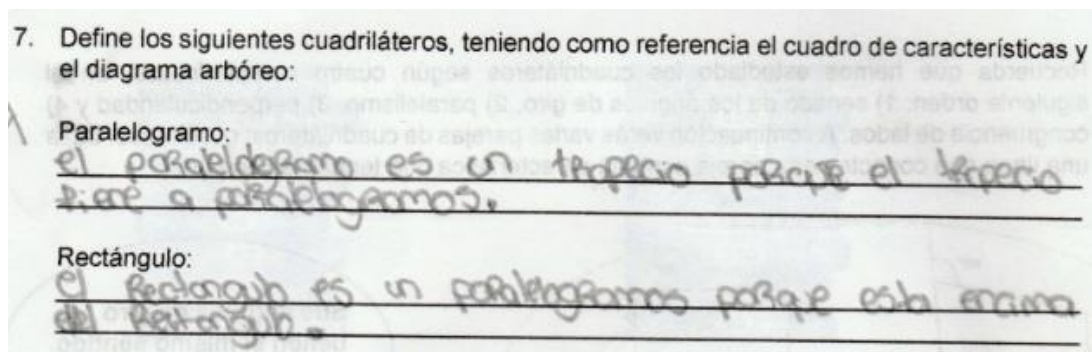 7. Define los siguientes cuadriláteros, teniendo como referencia el cuadro de características y
el diagrama arbóreo:
Paralelogramo:
el paralelogramo es un trapecio porque el trapecio
tiene a paralelogramos.
Rectángulo:
el Rectangulo es un paralelogramos porque esta encima
del Rectangulo.